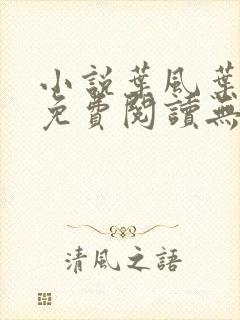 小說葉風葉
免費閱讀無
清風之語